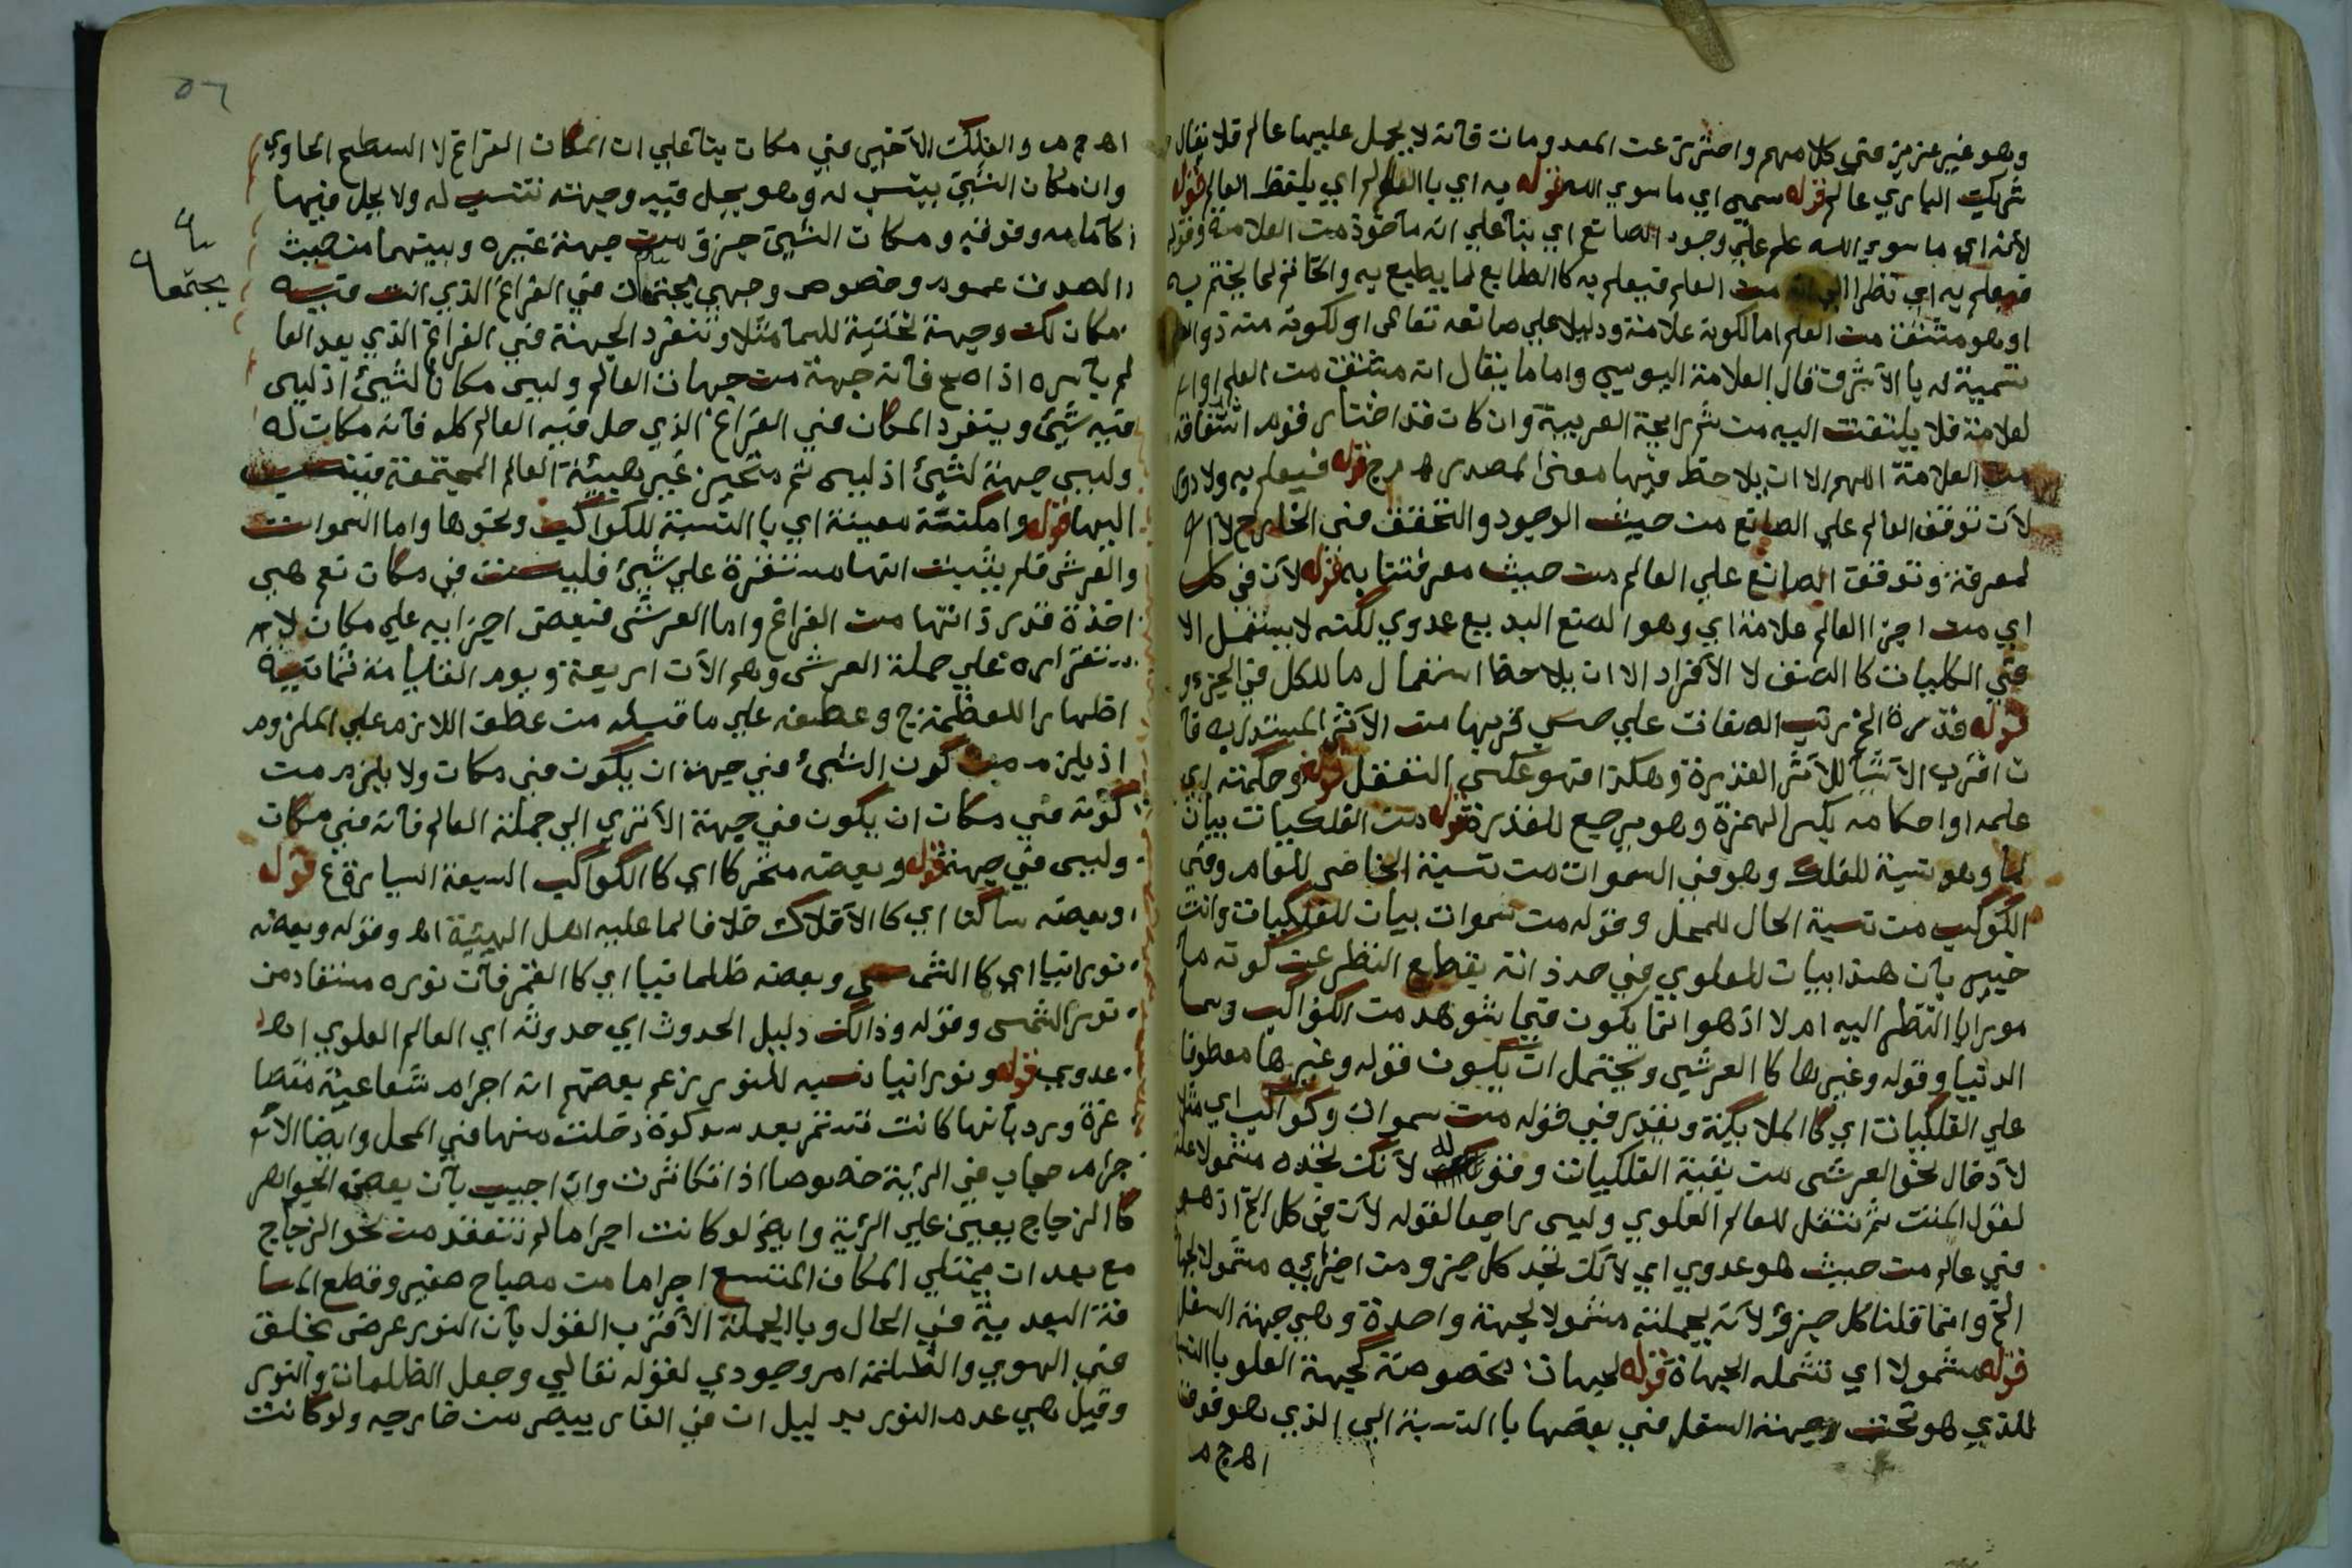 وهو غير عزيز في كلامهم واحترز عن المعدومات فآنه لا يحمل عليها عالم فلا يقال
شريك الباري عالم قوله سمي اي ما سوي الله قوله به اي با العالم اي بلفظ العالم قوله
لأنه اي ما سوي الله علم علي وجود الصانع اي بنآ علي انه مآخوذ من العلامة وقوله
فيعلم به اي نظرا الي انه من العلم فيعلم به كا الطابع لما يطبع به والخاتم لما يختم به
او هو مشتق من العلم اما لكونه علامة ودليلا علي صانعه تعالي او لكونه منه ذوا العلم
تسمية له با الآشرف قال العلامة اليوسي واما ما يقال انه مشتق من العلم او ا
لعلامة فلا يلتفت اليه من شم رايحة العربية وان كان قد اختار قوم اشتقاقه
من العلامة اللهم الا ان يلاحظ فيها معني المصدر اهـ م ج قوله فيعلم به ولا دور
لآن توقف العالم علي الصانع من حيث الوجود والتحقق في الخارج لا
لمعرفة وتوقف الصانع علي العالم من حيث معرفتنا به قوله لآن في كل
اي من اجزا العالم علامة اي وهو الصنع البديع عدوي لكنه لا يستعمل الا
في الكليات كا الصنف لا الآفراد الا ان يلاحظ استعمال ما للكل في الجزء و
قوله قدرة الخ رتب الصفات علي حسب قربها من الآثر المستدل به فآ
ن اقرب الآشيآ للآثر القدرة وهكذا فهو عكس التعقل قوله وحكمته اي
علمه او احكامه بكسر الهمزة وهو يرجع للقدرة قوله من الفلكيات بيان
لما وهو نسبة للفلك وهو في السموات من نسبة الخاص للعام وفي
الكوكب من نسبة الحال للمحل وقوله من سموات بيان للفلكيات وانت
خبير بآن هذا بيان للعلوي في حد ذاته يقطع النظر عن كونه مآ
مورا با النظر اليه ام لا اذ هو انما يكون فيما يشوهد من الكواكب وسما
الدنيا وقوله وغيرها كا العرش ويحتمل ان يكون قوله وغيرها معطوفا
علي الفلكيات اي كا الملايكة ويقدر في قوله من سموات وكواكب اي مثلا
لآدخال نحو العرش من بقية الفلكيات وقوله لآنك تجده مشمولا علة
لقول المتن ثم تنتقل للعالم العلوي وليس راجعا لقوله لآن في كل الخ اذ هو
في عالم من حيث هو عدوي اي لآنك تجد كل جزو من اجزايه مشمولا لجهآ
الخ وانما قلنا كل جزؤ لآنه بجملته مشمولا لجهة واحدة وهي جهة السفل
قوله مشمولا اي تشمله الجهاة قوله لجهات مخصوصة كجهة العلو با النسبة
للذي هو تحت وجهة السفل في بعضها با النسبة الي الذي هو فوق
اهـ ج م
٥٦
اهـ ج م والفلك الآخير في مكان بنآ علي ان المكان الفراغ لا السطح الحاوي
وان مكان الشيئ ينسب له وهو يحل فيه وجهته تنسب له ولا يحل فيها
كآمامه وفوقه ومكان الشيئ جزؤ من جهة غيره وبينهما من حيث
الصدق عموم وخصوص وجهي يجتمعان في الفراغ الذي انت فيه
مكان لك وجهة تحتية للسما مثلا وتنفرد الجهة في الفراغ الذي بعد العا
لم بآسره اذا صح فآنه جهة من جهات العالم وليس مكان لشيئ اذ ليس
فيه شيئ وينفرد المكان في الفراغ الذي حل فيه العالم كله فآنه مكان له
وليس جهة لشيئ اذ ليس ثم متحيز غير هيئة العالم المجتمعة فينسب
اليها قوله وامكنة معينة اي با النسبة للكواكب ونحوها واما السموات
والعرش فلم يثبت انها مستقرة علي شيئ فليست في مكان نعم هي
اخذة قدر ذاتها من الفراغ واما العرش فبعض اجزايه علي مكان لا
ستقراره علي حملة العرش وهم الآن اربعة ويوم القيامة ثمانية
اظهارا للعظمة ج وعطفه علي ما قبله من عطف اللازم علي الملزوم
اذ يلزم من كون الشيئ في جهة ان يكون في مكان ولا يلزم من
كونه في مكان ان يكون في جهة الآتري الي جملة العالم فآنه في مكان
وليس في جهة قوله وبعضه متحركا اي كا الكواكب السبعة السيارة ع قوله
وبعضه ساكنا اي كا الآفلاك خلافا لما عليه اهل الهيئة اهـ وقوله وبعضه
نورانيا اي كا الشمس وبعضه ظلمانيا اي كا القمر فآن نوره مستفاد من
نور الشمس وقوله وذالك دليل الحدوث اي حدوثه اي العالم العلوي اهـ
عدوي قوله ونورانيا نسبه للنور بزعم بعضهم انه اجرام شعاعية متصا
غرة ورد بآنها كانت تستمر بعد سد كوة دخلت منها في المحل وايضا الآ
جرام حجاب في الرئية خصوصا اذا تكاثرت وان اجيب بآن بعض الجواهر
كا الزجاج يعين علي الرئية وايضا لو كانت اجراما لم تنفذ من نحو الزجاج
مع بعد ان يمتلي المكان المتسع اجراما من مصباح صغير وقطع المسا
فة البعدية في الحال وبا الجملة الآقرب القول بآن النور عرض يخلق
في الهوي والظلمة امر وجودي لقوله تعالي وجعل الظلمات والنور
وقيل هي عدم النور بدليل ان في الغار يبصر من خارجه ولو كانت
يجتمعا